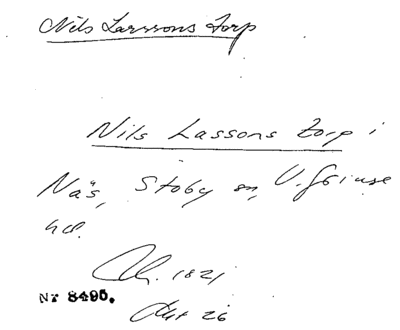 Nils Larssons Torp
Nils Lassons torp i
Näs, Stoby sn, V. Göinge
hd.
1821
Akt 26
Nr 8495.